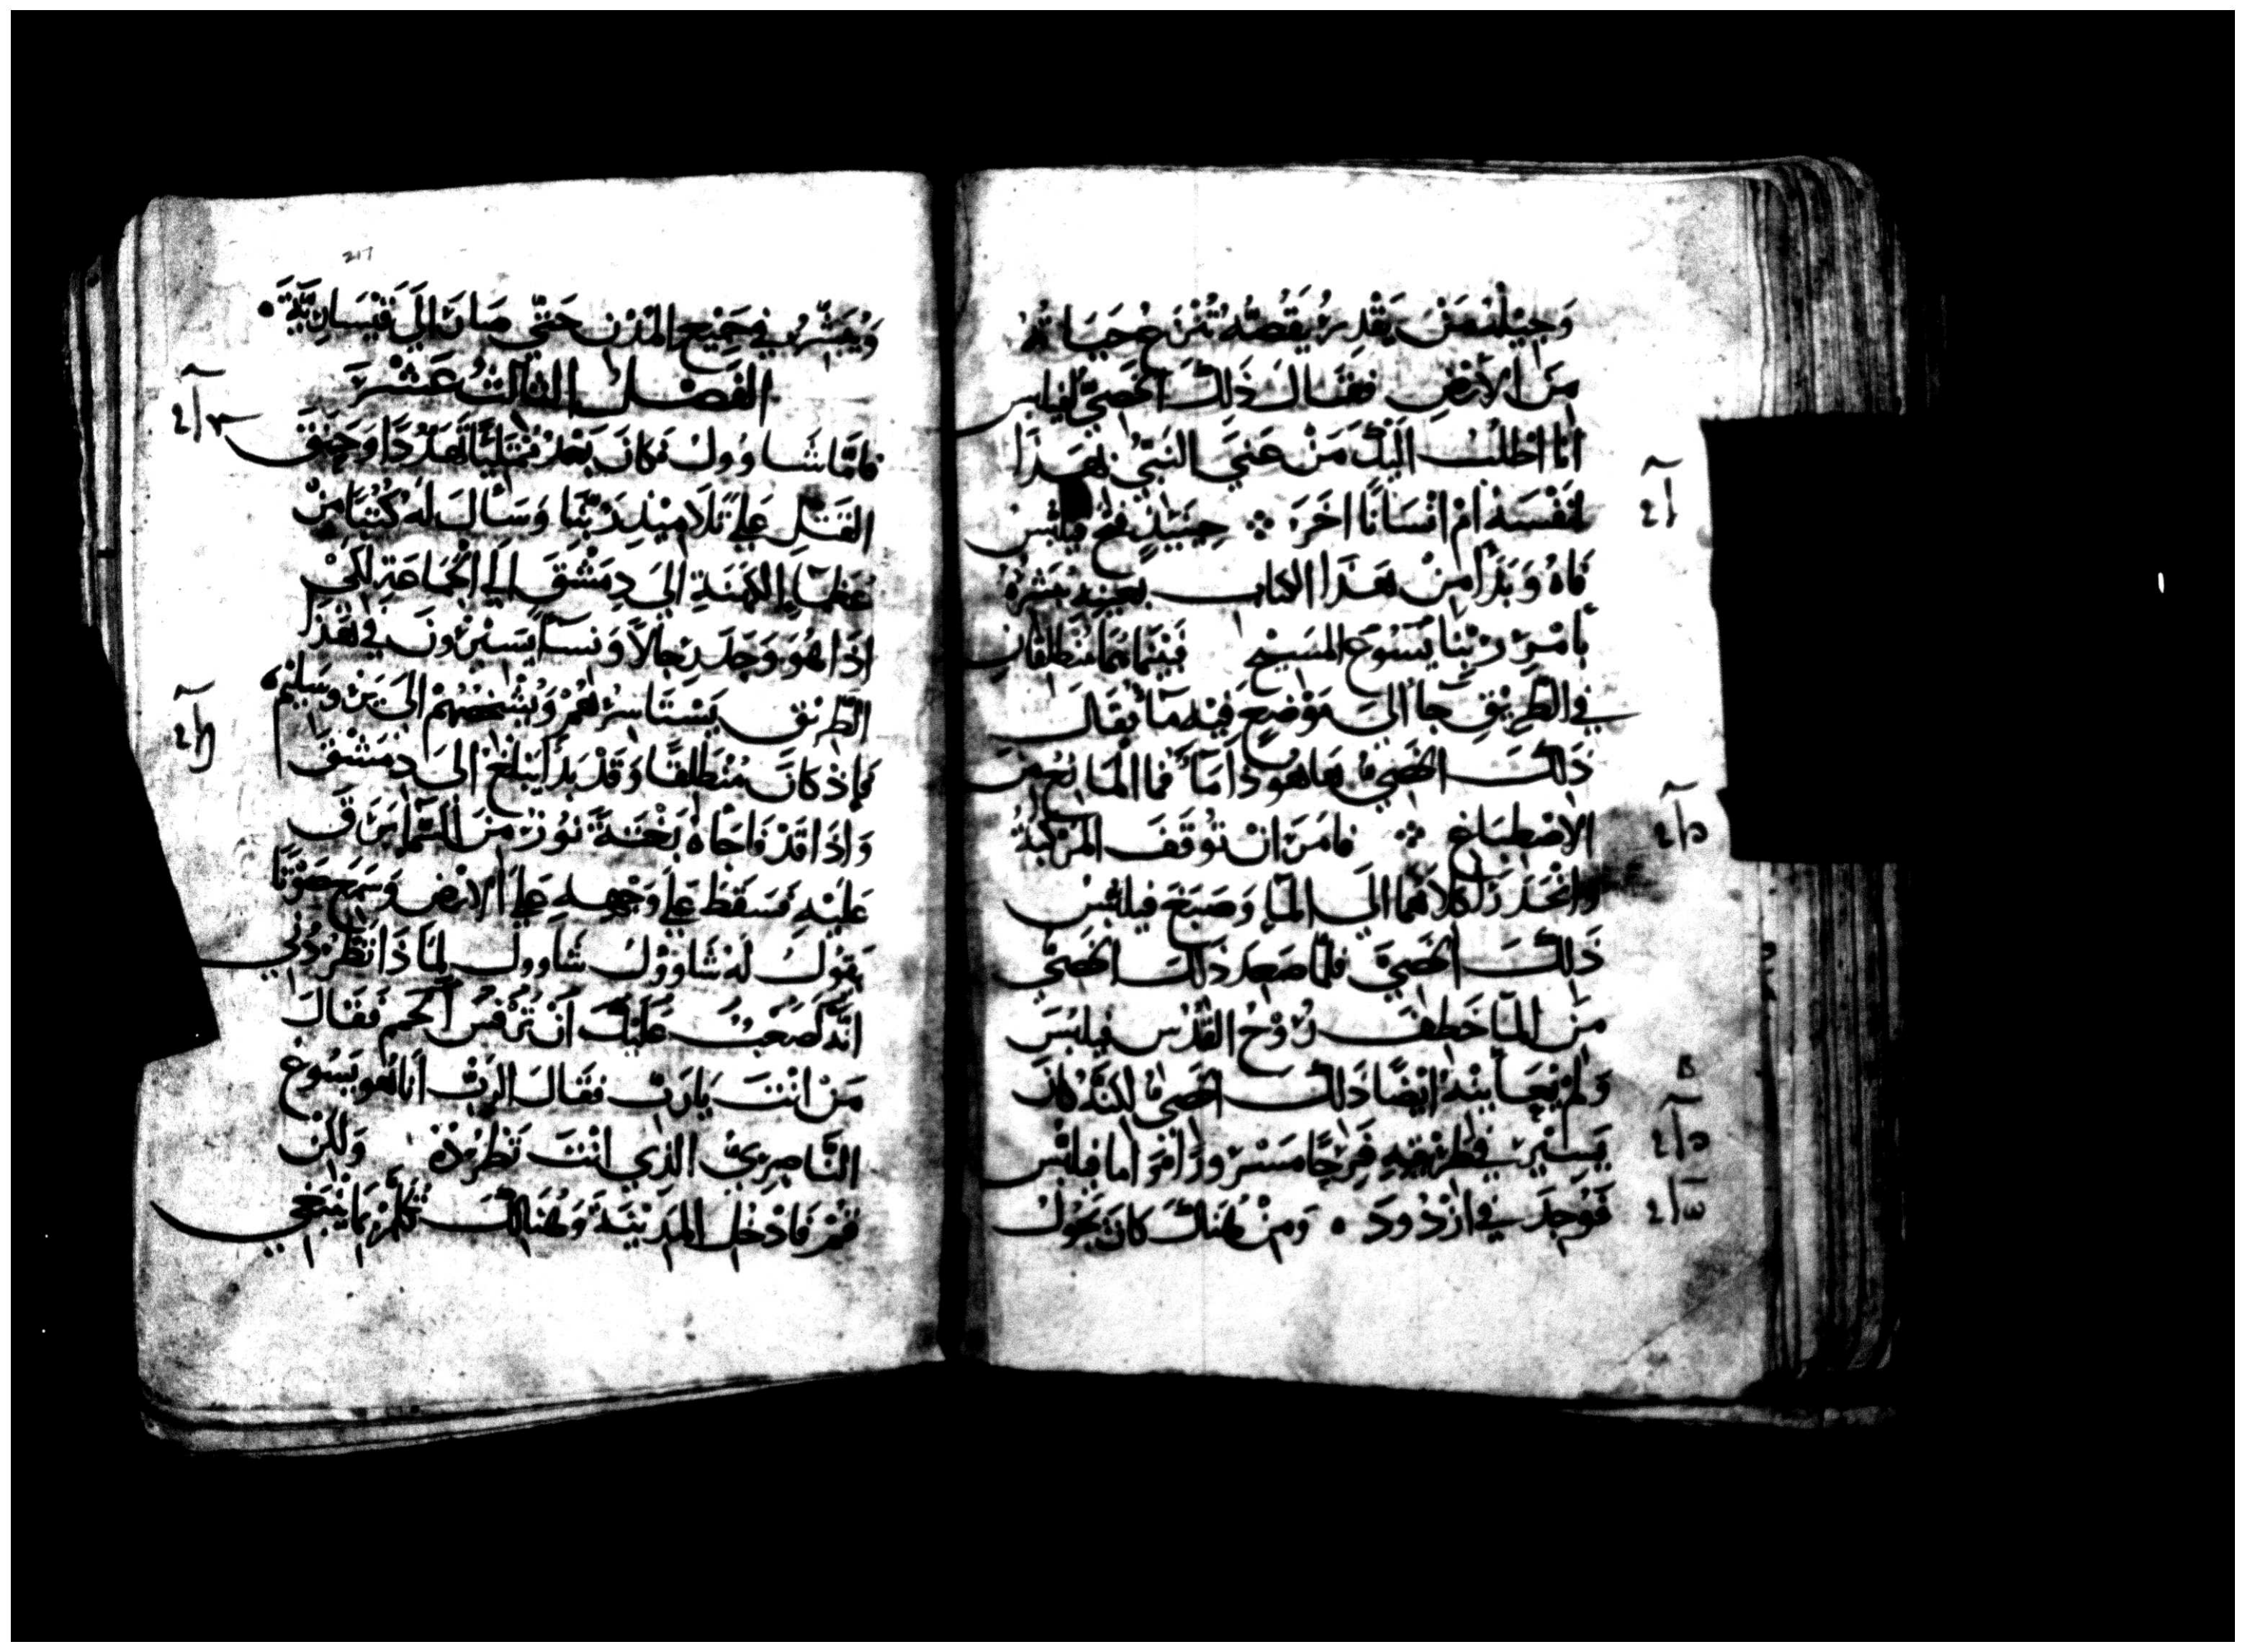 وَجِيْلُهُ مَنْ يَقْدِرُ يَقُصُّهُ تُنْزَعُ حَيَاتُهُ
مِنَ الأَرْضِ فَقَالَ ذَلِكَ الخَصِيُّ لفيلبس
انا اطلُبُ اليْكَ مَنْ عَنِيَ النَبِيُّ بهَذَا
لنَفْسَهُ امْ انْسَانًا اخَرَ ܀ حِيْنَيْذٍ فتح فيلبس
فاهُ وَبَدَأ مِنْ هَذَا الكتاب بعينه يبشرهُ
بأمْرِ رَبِّنا يَسُوع المَسِيْح فَبَيْنَمَا هُمَا مُنطَلقان
في الطَرِيْقِ جا الىَ مَوْضِعٍ فِيْهِ مآ فقَال
ذلِكَ الخَصِيُّ هاهوذا مَآ فما المانِعُ مِنَ
الاصْطِبَاغِ ܀ فامَرَ انْ تُوقَفَ المَرْكَبَةُ
وانْحَدَرَ كلاهُمَا الَى المآ وَصَبَغَ فيلبسُ
ذَلِكَ الخَصِيَّ فلمّا صَعِدَ ذلِكَ الخَصِيُّ
مِنَ المآ خَطِفَ رُوْحُ القُدُسِ فيلبُسَ
وَلَمْ يُعَايِنْهُ ايْضًا ذَلِكَ الخَصِيُّ لكنَّهُ كانَ
يَسِيْرُ في طَرِيْقِهِ فَرِحًا مَسْرُورًا وَامَّا فيلبُس
فَوُجِدَ في ازْدُودَ ٠ وَمِنْ هُنَاكَ كانَ يَجُوْلُ
217
وَيُبَشِّرُ في جَمِيْعِ المُدُنِ حَتَّى صَارَ الَى قَيْسَارِيَّةَ ٠
الفَصْلُ الثالثُ عَشْرَ
فامَّا شاوُولُ فكانَ بَعْدُ مُمْتَلِيًا تَهَدُّدًا وَحِنْقَ
القَتْلِ عَلَى تَلَامِيْذِ رَبِّنَا وَسَأَلَ لَهُ كُتُبًا مِنْ
عُظَمَاء الكَهَنَةِ الىَ دِمَشْقَ الى الجَمَاعَةِ لكَيْ
اذَا هُوَ وَجَدَ رِجَالًا وَنِسَآ يَسِيْرُونَ في هَذَا
الطَرِيْق يَسْتَاسِرُهُمْ وَيُشْخِصُهُمْ الىَ يَرُوسَلِيْمَ ٠
فإذْ كانَ مُنْطَلِقًا وَقَدْ بَدَأ يَبْلُغُ الىَ دِمَشْقَ
وَاذَا قَدْ فَاجَاهُ بَغْتَةً نُوْرٌ مِنَ السَّمآ بَرَقَ
عَلَيْهِ فَسَقَطَ عَلَى وَجْهِهِ عَلَى الارْضِ وَسَمِعَ صَوْتًا
يَقوْلُ لَهُ شَاوُوْلُ شَاوول لِمَاذَا تَطْرُدُنِي
انَّهُ لَصَعْبٌ عَلَيْكَ اَنْ تَرْفُسَ الحُمَّ فَقَالَ
مَنْ انْتَ يَارَبُّ فقَالَ الرَبُّ اَنَا هُو يَسُوعُ
النَّاصِرِيّ الذي انْتَ تَطْرُدُهُ وَلكِن
قُمْ فَادْخُل المَدِيْنَةَ وَهُنَالِكَ تُكَلَّمُ بمَا يَنْبَغِي